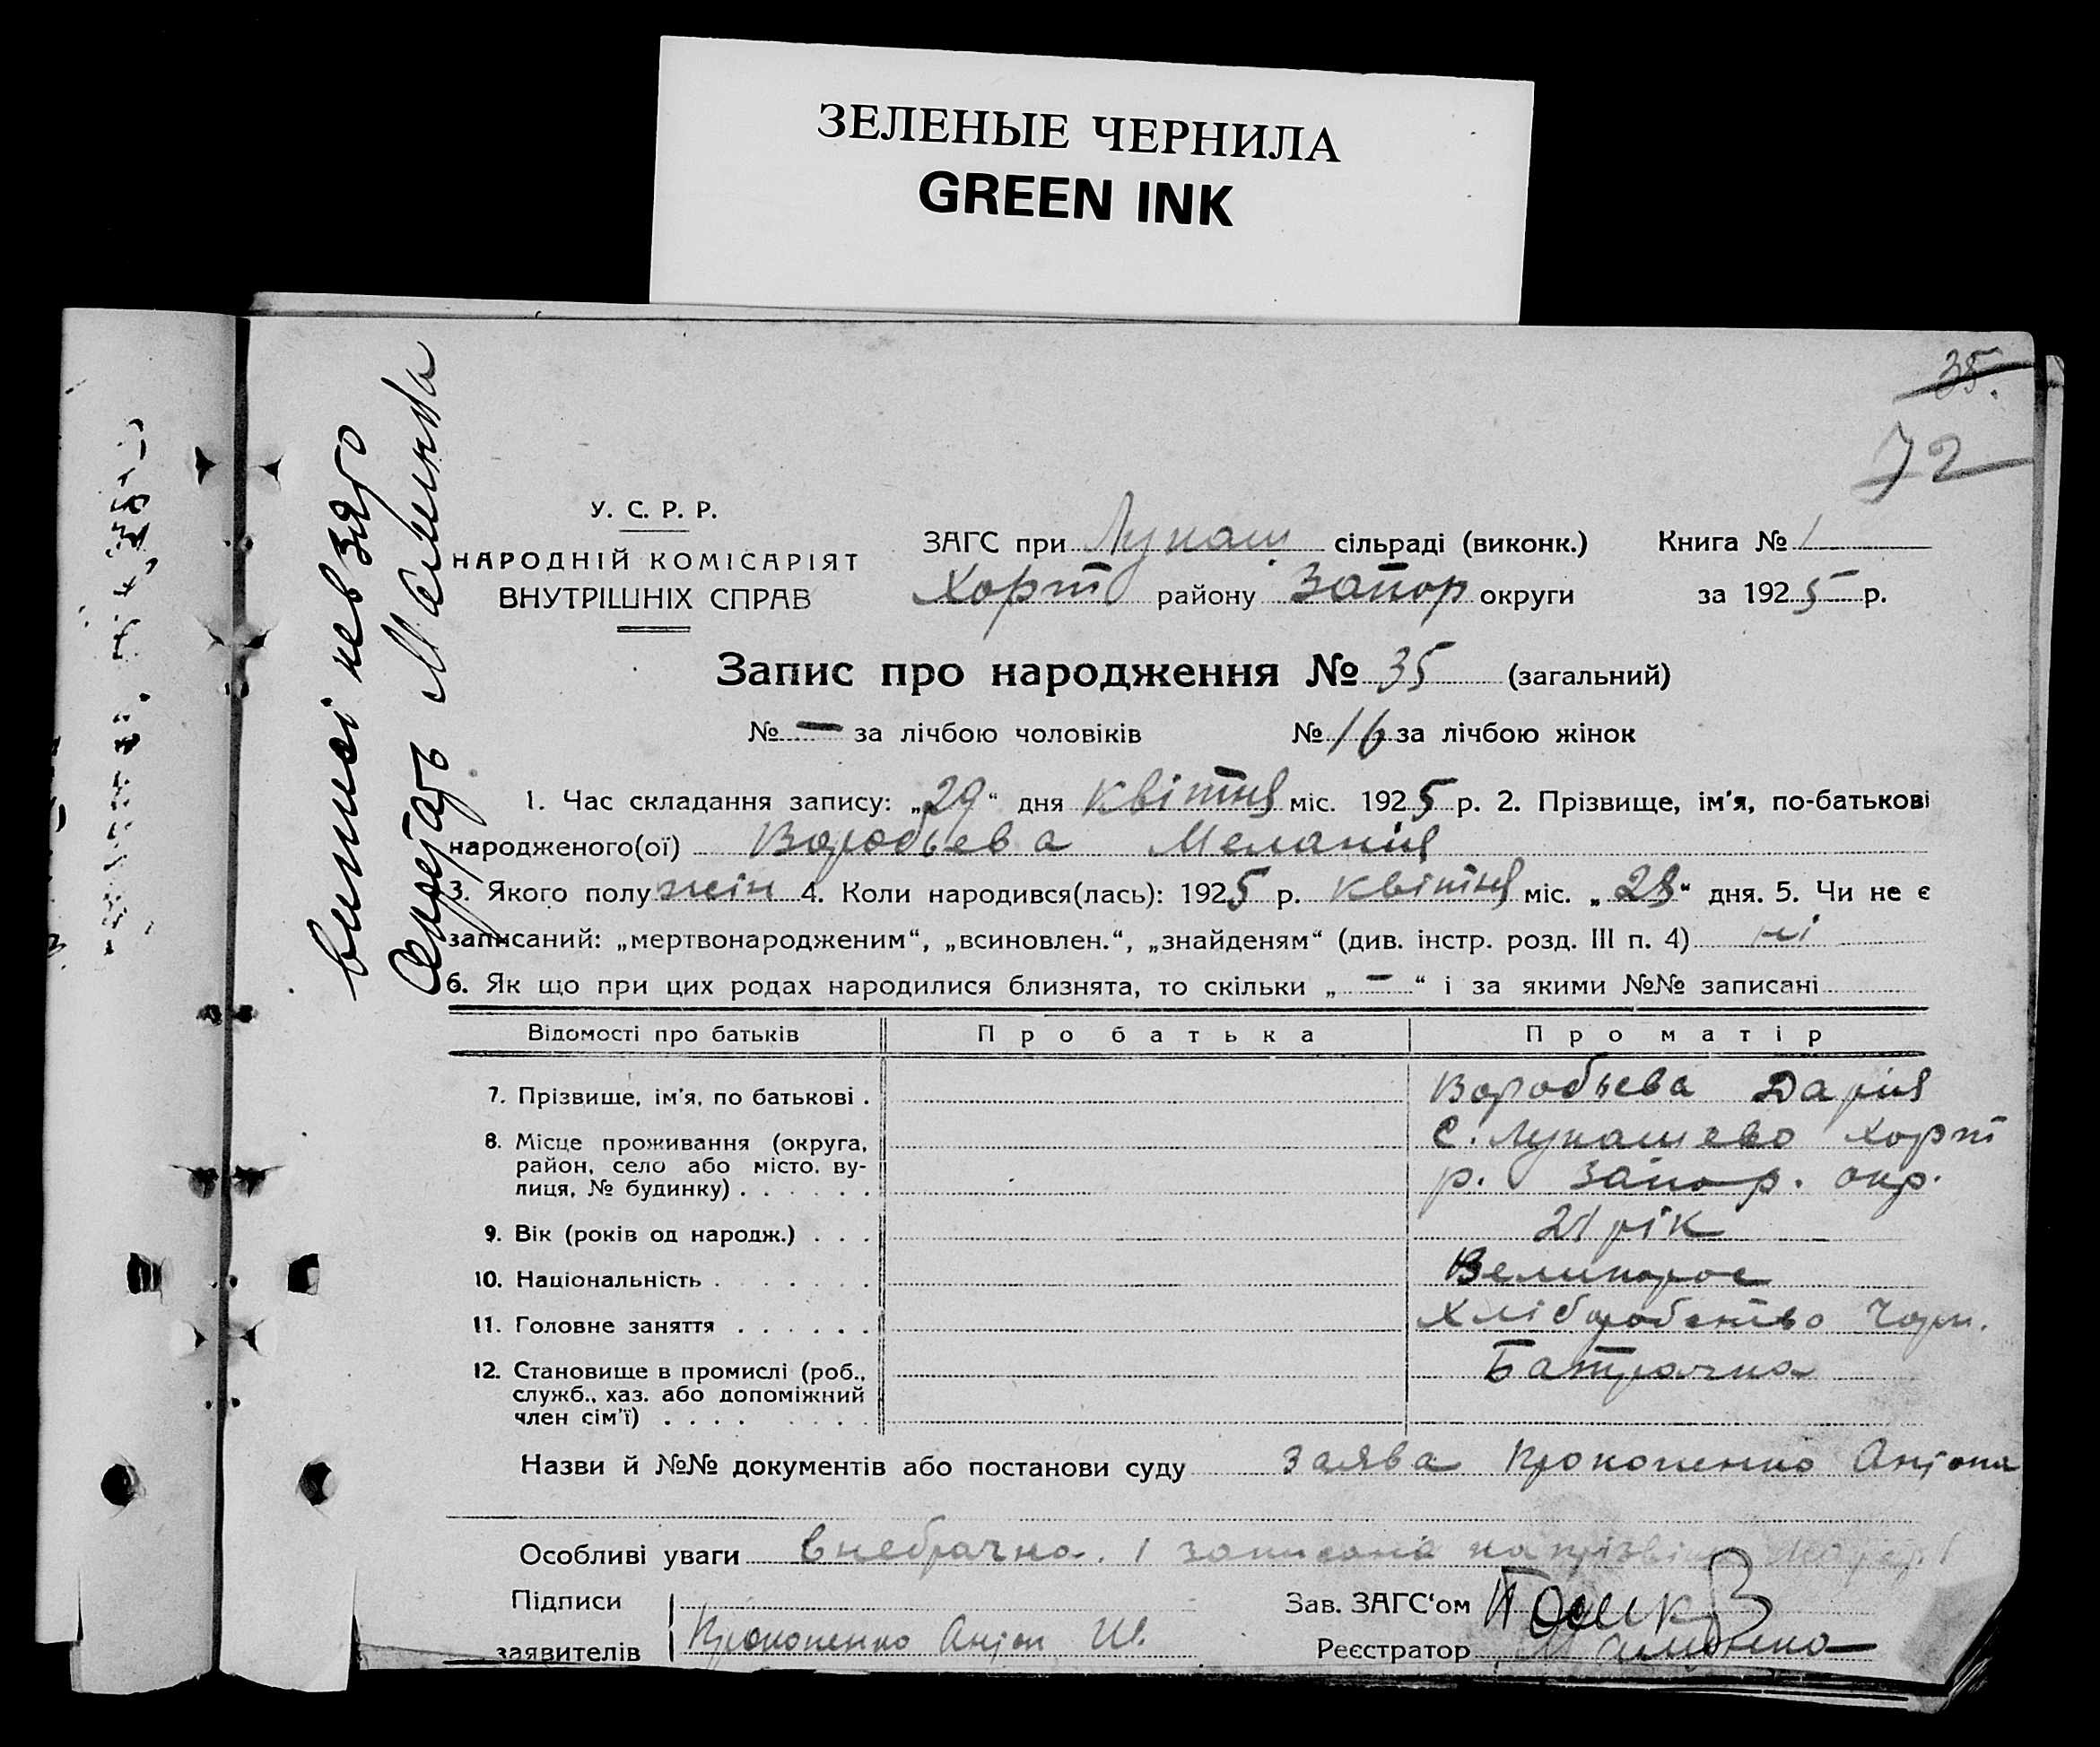 ЗЕЛЕНЫЕ ЧЕРНИЛА
GREEN INK
35.
72
виписі не взято
Секретарь
У. С. Р. Р.
НАРОДНІЙ КОМІСАРІЯТ
ВНУТРІШНІХ СПРАВ
ЗАГС при Лукаш сільраді (виконк.) Книга № 1
Хорт району Запор округи за 1925 р.
Запис про народження № 35 (загальний)
№ — за лічбою чоловіків № 16 за лічбою жінок
1. Час складання запису: „29“ дня квітня міс. 1925 р. 2. Прізвище, ім'я, по-батькові
народженого(ої) Воробьева Меланія
3. Якого полу жін 4. Коли народився(лась): 1925 р. квітня міс. „28“ дня. 5. Чи не є
записаний: „мертвонародженим“, „всиновлен.“, „знайденям“ (див. інстр. розд. III п. 4) ні
6. Як що при цих родах народилися близнята, то скільки „ — “ і за якими №№ записані
Відомості про батьків Про батька Про матір
7. Прізвище, ім'я, по батькові . Воробьева Дарія
8. Місце проживання (округа, с. Лукашево Хорт
район, село або місто, ву-
лиця, № будинку) . . . . . . р. Запор. окр.
9. Вік (років од народж.) . . . 21 рік
10. Національність . . . . . . . Великорос
11. Головне заняття . . . . . . Хліборобство Чорн.
12. Становище в промислі (роб., Батрачка
служб., хаз. або допоміжний
член сім'ї) . . . . . . . . .
Назви й №№ документів або постанови суду заява Прокопенко Антона
Особливі уваги внебрачна. і записана на прізвіще матері
Підписи Зав. ЗАГС'ом
заявителів Прокопенко Антон Реєстратор